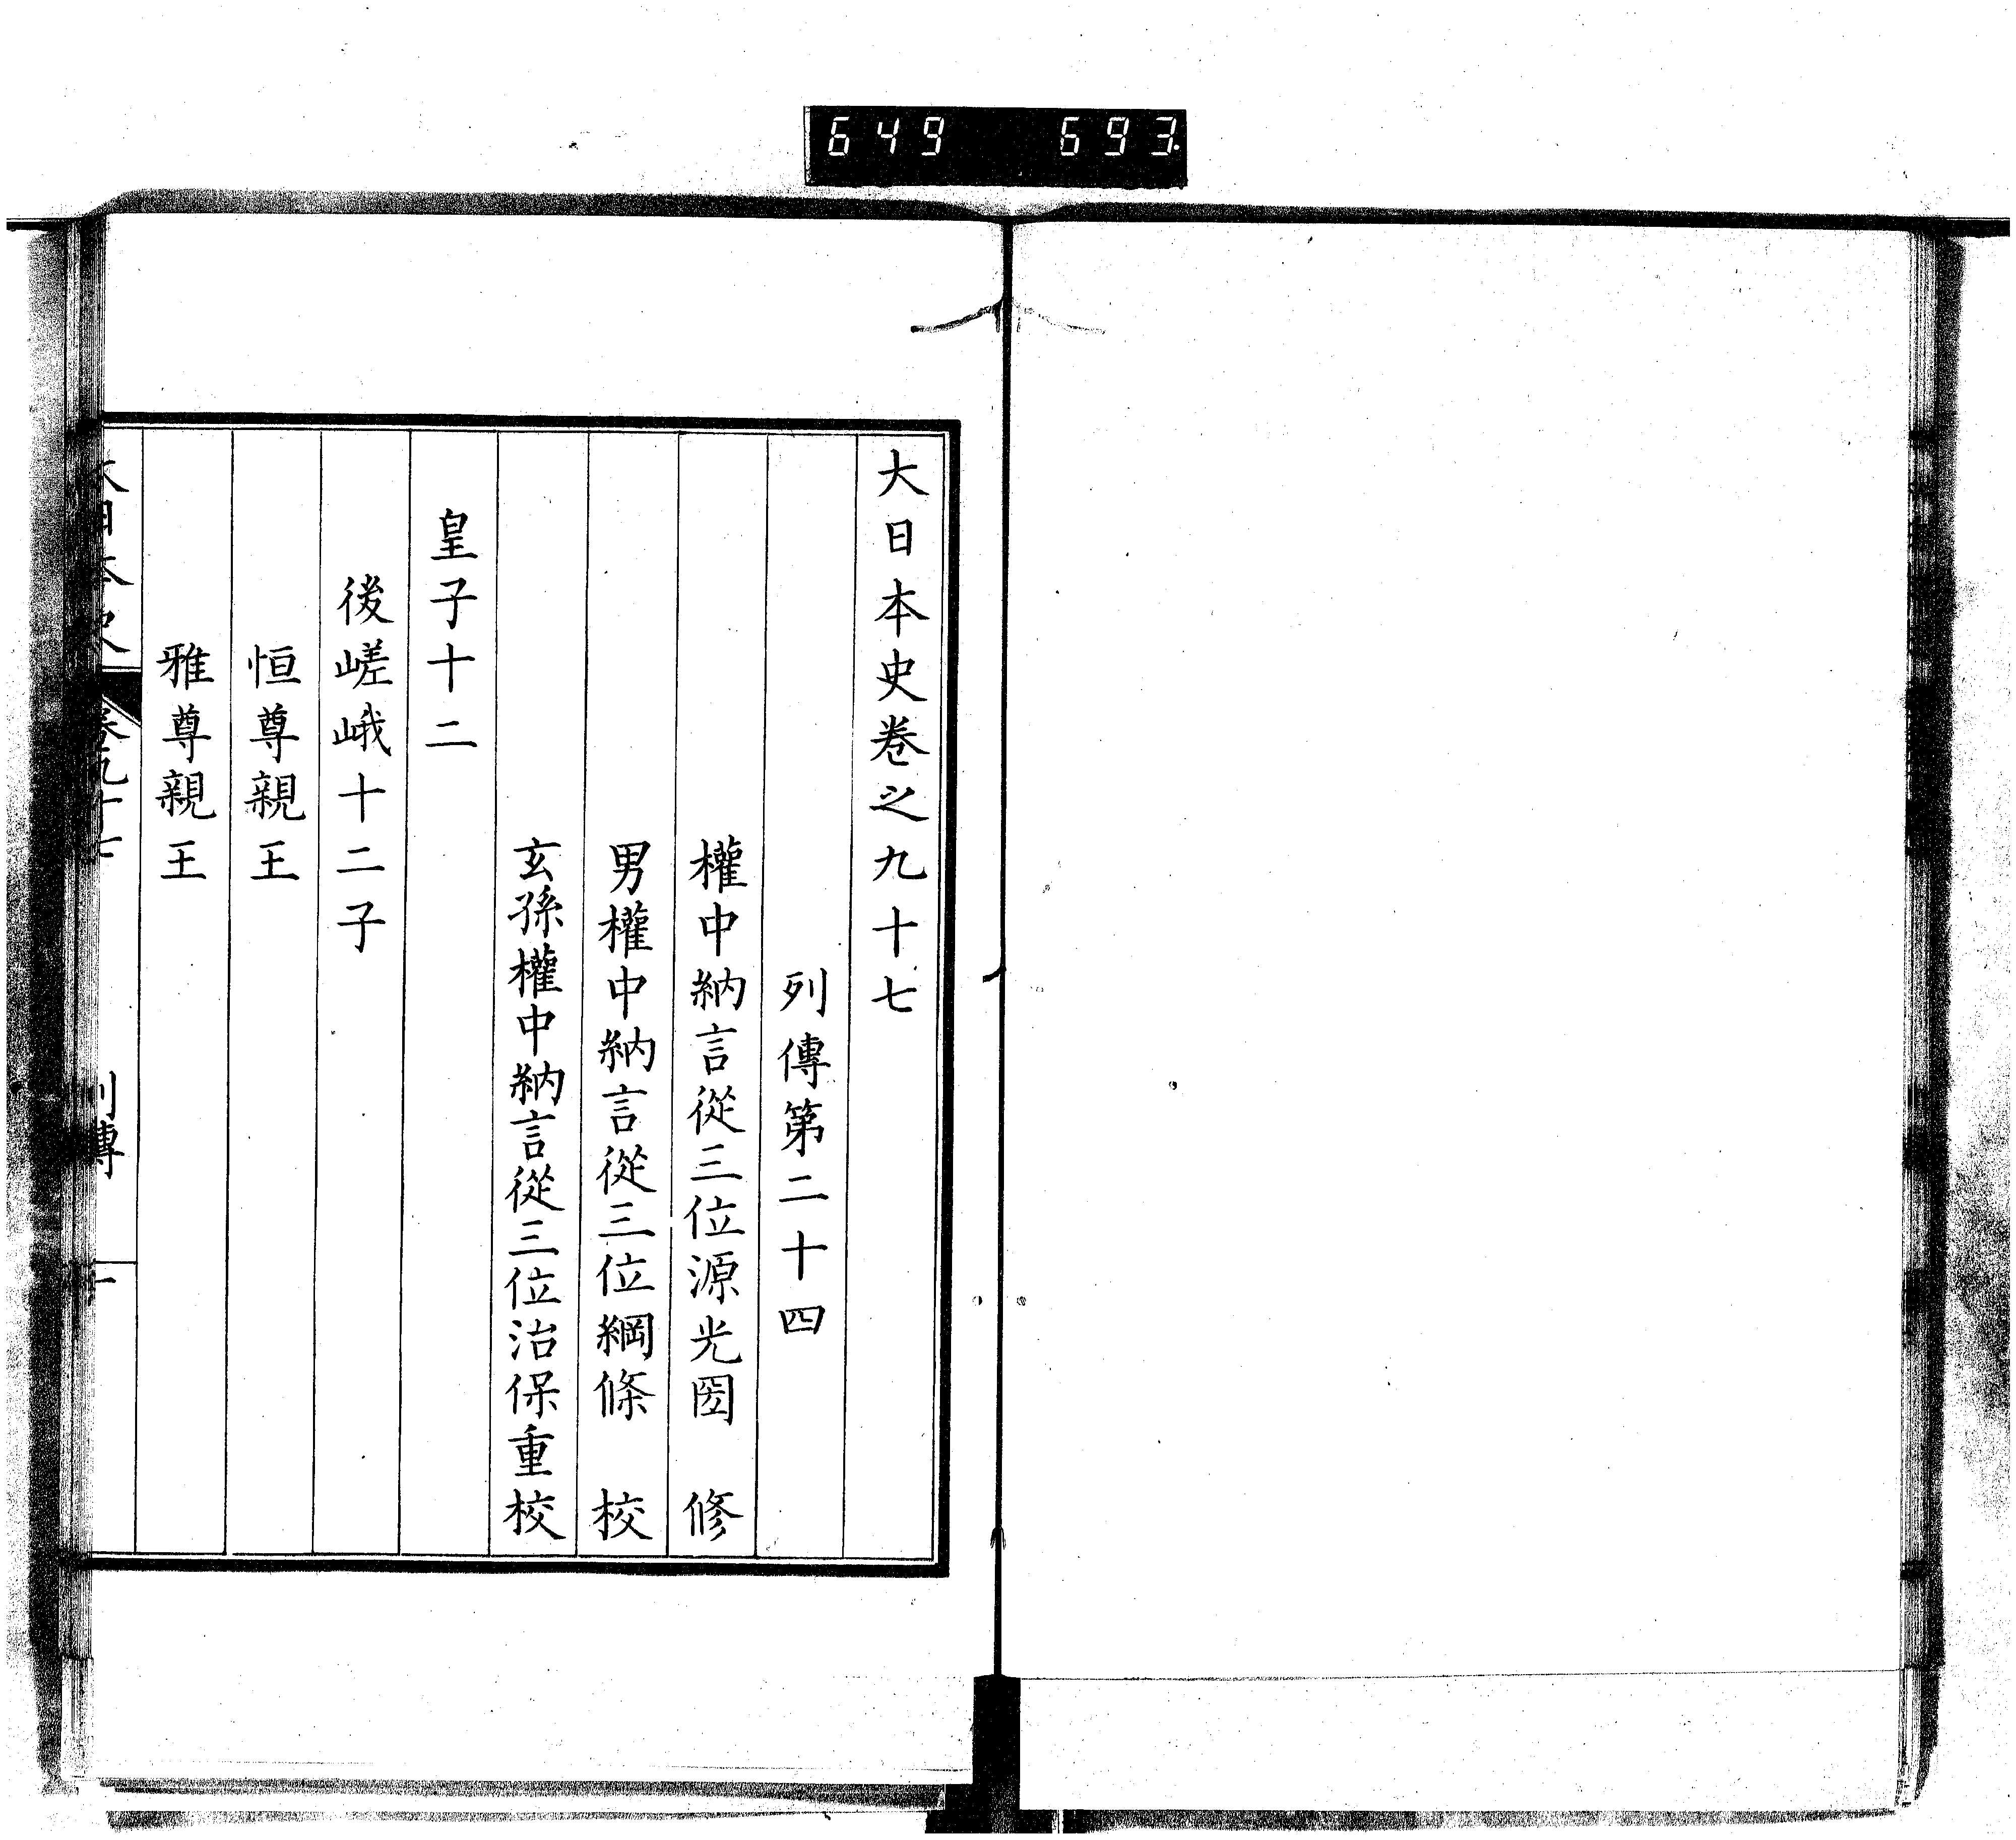 649 693.
大日本史卷之九十七
列傳第二十四
權中納言從三位源光圀 修
男權中納言從三位綱條 校
玄孫權中納言從三位治保重校
皇子十二
後嵯峨十二子
恒尊親王
雅尊親王
大日本史 卷九十七 列傳